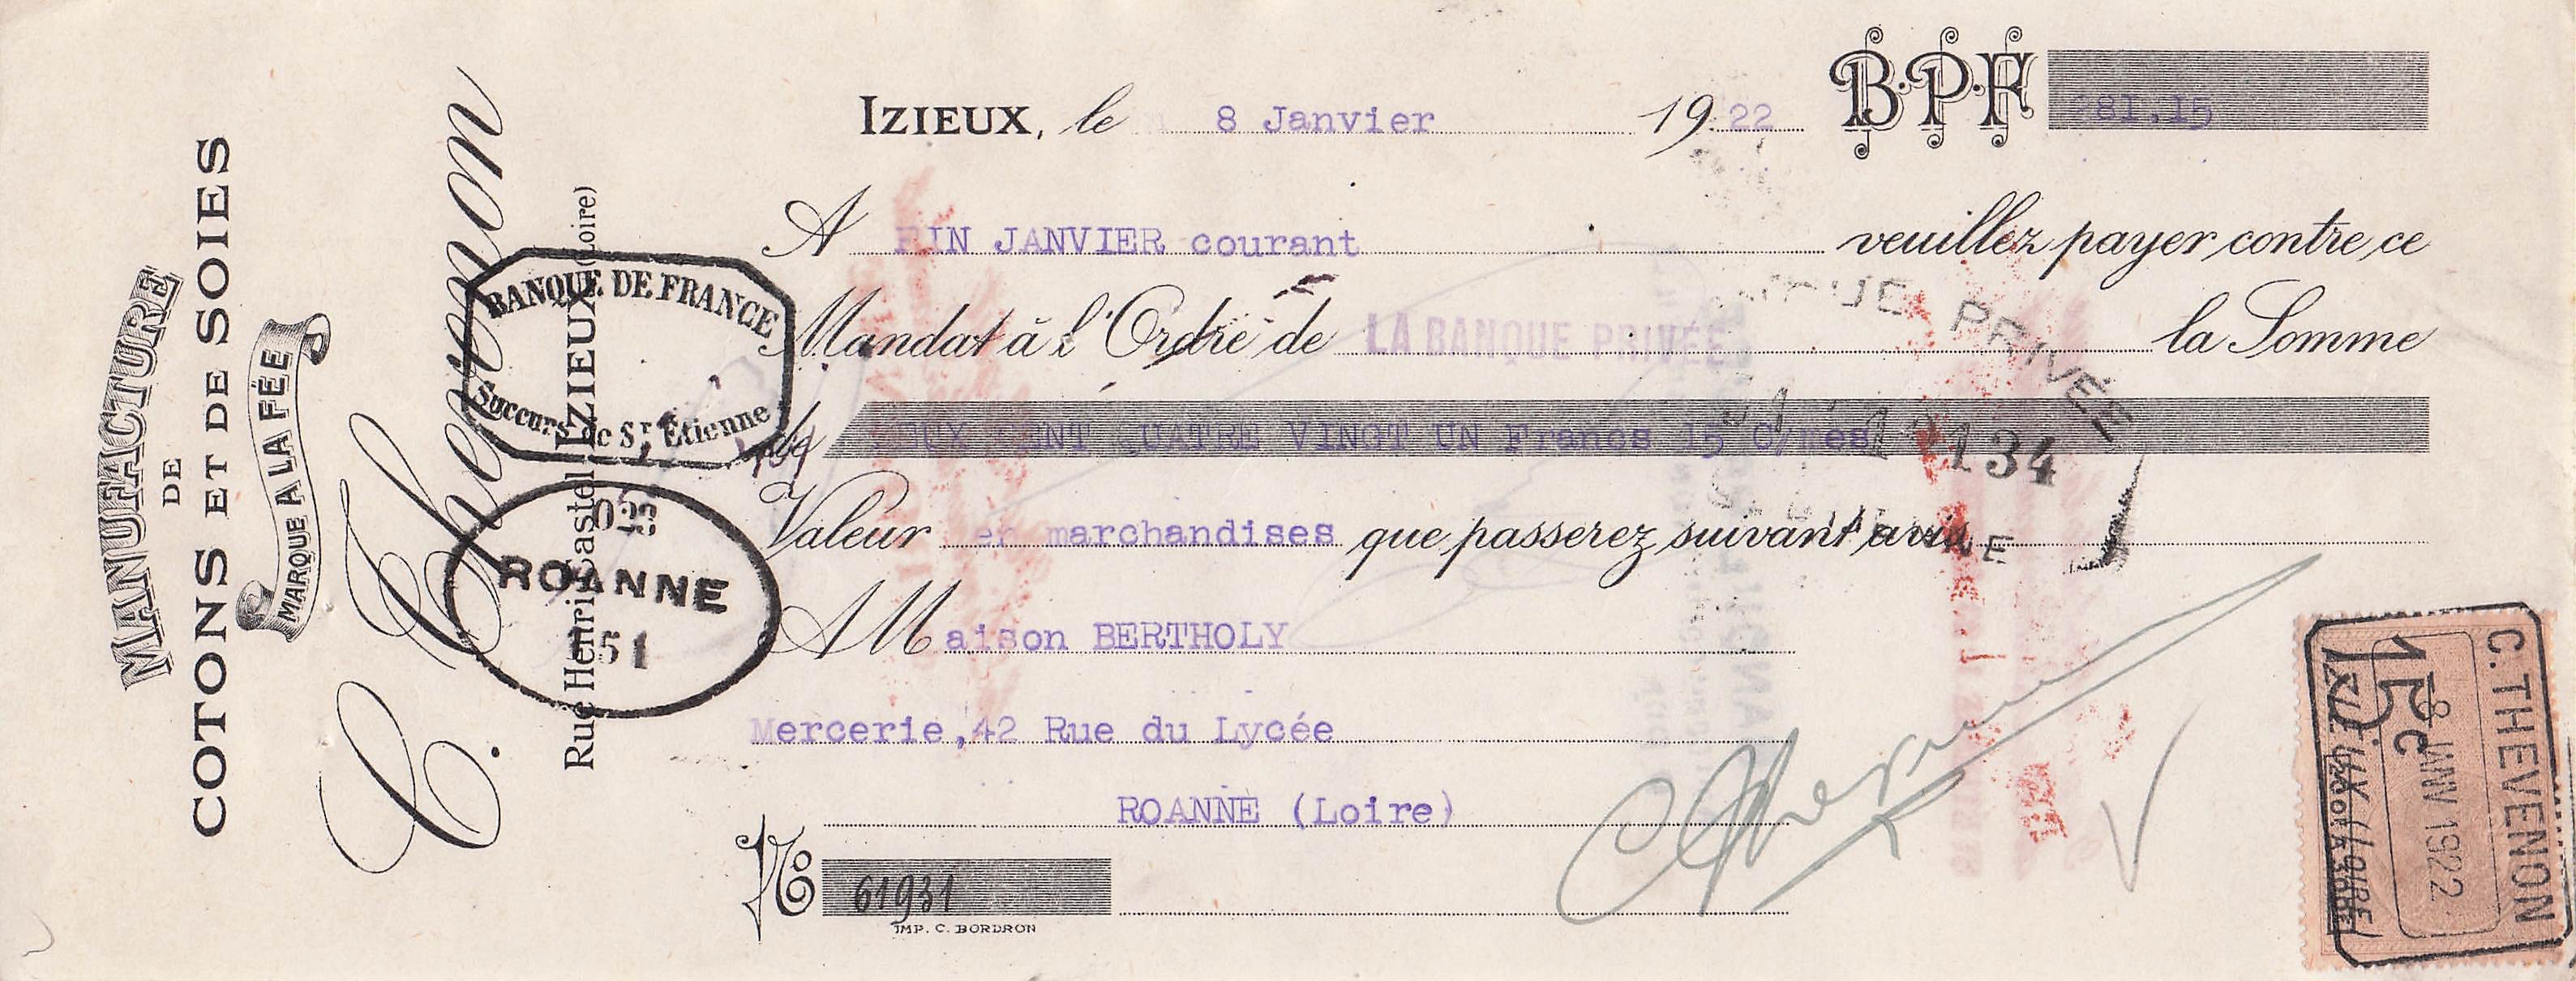 MANUFACTURE
DE
COTONS ET DE SOIES
MARQUE A LA FÉE
C. Thevenon
Rue Henri Castel IZIEUX (Loire)
BANQUE DE FRANCE
Succurs. de St Étienne
ROANNE
151
IZIEUX, le 8 Janvier 1922 B.P.F. 281.15
A FIN JANVIER courant veuillez payer contre ce
Mandat à l'Ordre de LA BANQUE PRIVÉE la Somme
de UX ENT UATRE VINGT UN Francs 15 C/mes
PRIVÉE
134
Valeur en marchandises que passerez suivant avis
A Maison BERTHOLY
Mercerie, 42 Rue du Lycée
ROANNE (Loire)
No 61931
IMP. C. BORDRON
C. THEVENON
8 JANV 1922
IZIEUX (LOIRE)